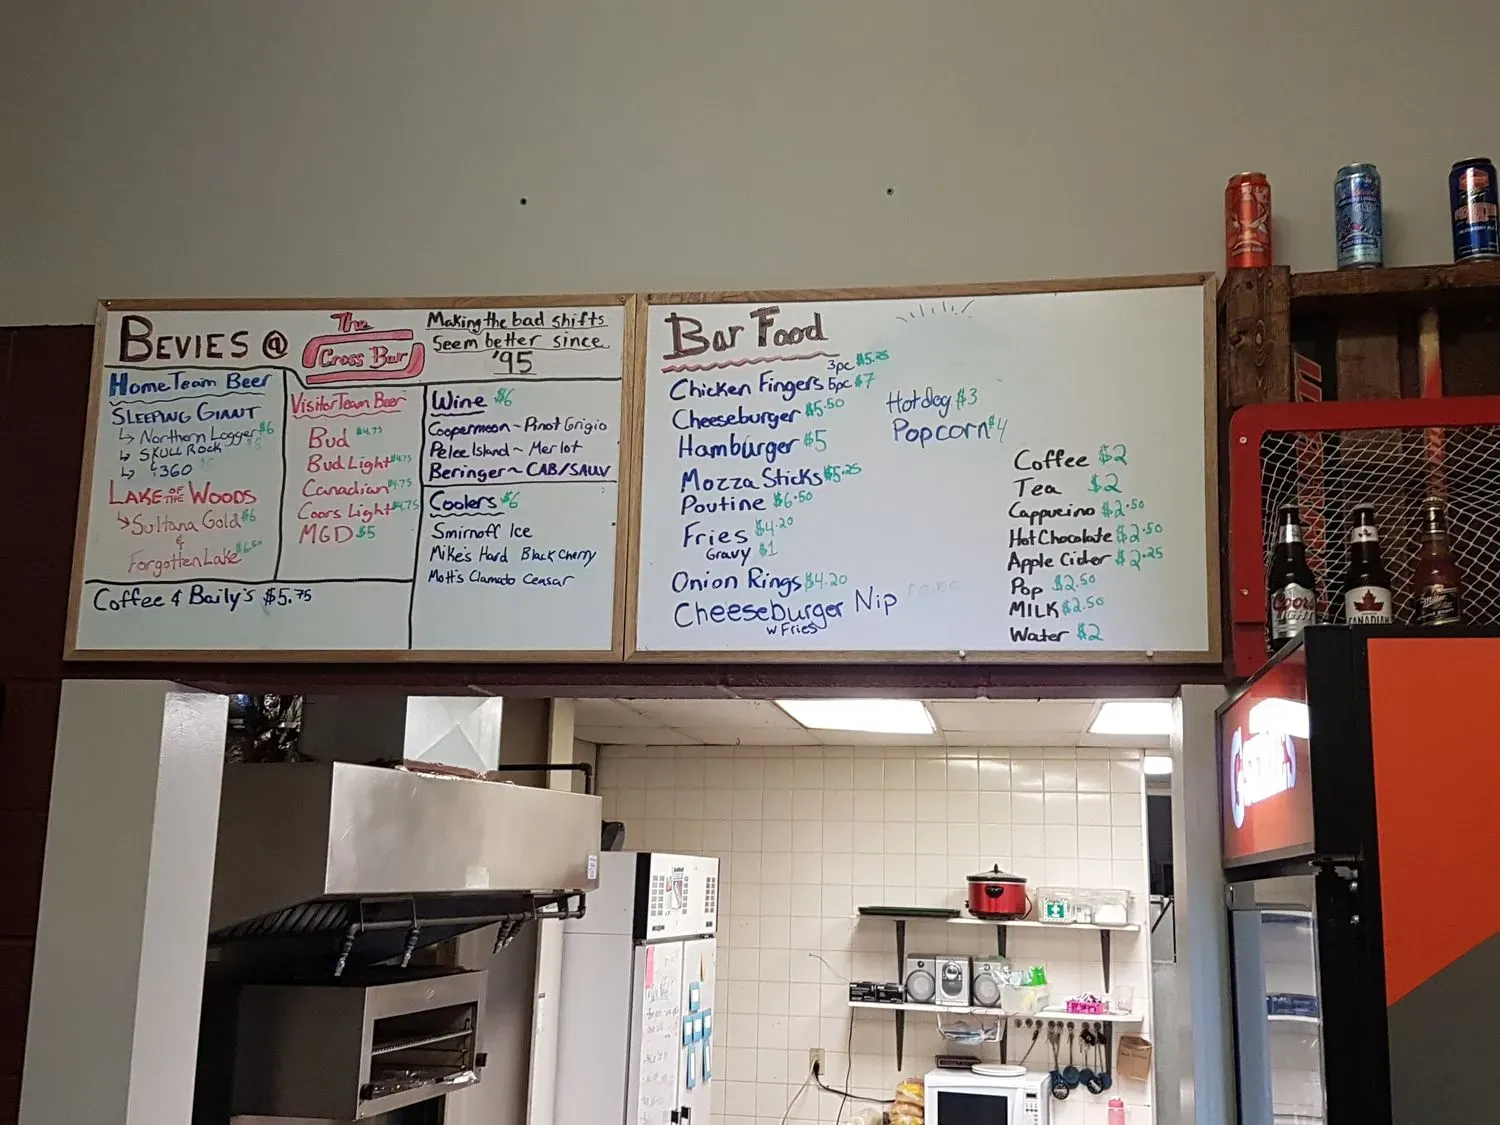 BEVIES @
The
Cross Bar
Making the bad shifts
Seem better since
'95
Home Team Beer
SLEEPING GIANT
↳ Northern Logger $6
↳ SKULL ROCK
↳ 360
LAKE OF THE WOODS
↳ Sultana Gold $6
&
Forgotten Lake $6.50
Visitor Team Beer
Bud $4.75
Bud Light $4.75
Canadian $4.75
Coors Light $4.75
MGD $5
Wine $6
Coopermoon ~ Pinot Grigio
Pelee Island ~ Merlot
Beringer ~ CAB/SAUV
Coolers $6
Smirnoff Ice
Mike's Hard Black Cherry
Mott's Clamado Ceasar
Coffee & Baily's $5.75
Bar Food
Chicken Fingers 3pc $5.25
5pc $7
Cheeseburger $5.50
Hamburger $5
Mozza Sticks $5.25
Poutine $6.50
Fries $4.20
Gravy $1
Onion Rings $4.20
Cheeseburger Nip
w Fries
Hotdog $3
Popcorn $4
Coffee $2
Tea $2
Cappucino $2.50
Hot Chocolate $2.50
Apple Cider $2.25
Pop $2.50
MILK $2.50
Water $2
Coors
LIGHT
CANADIAN
Miller